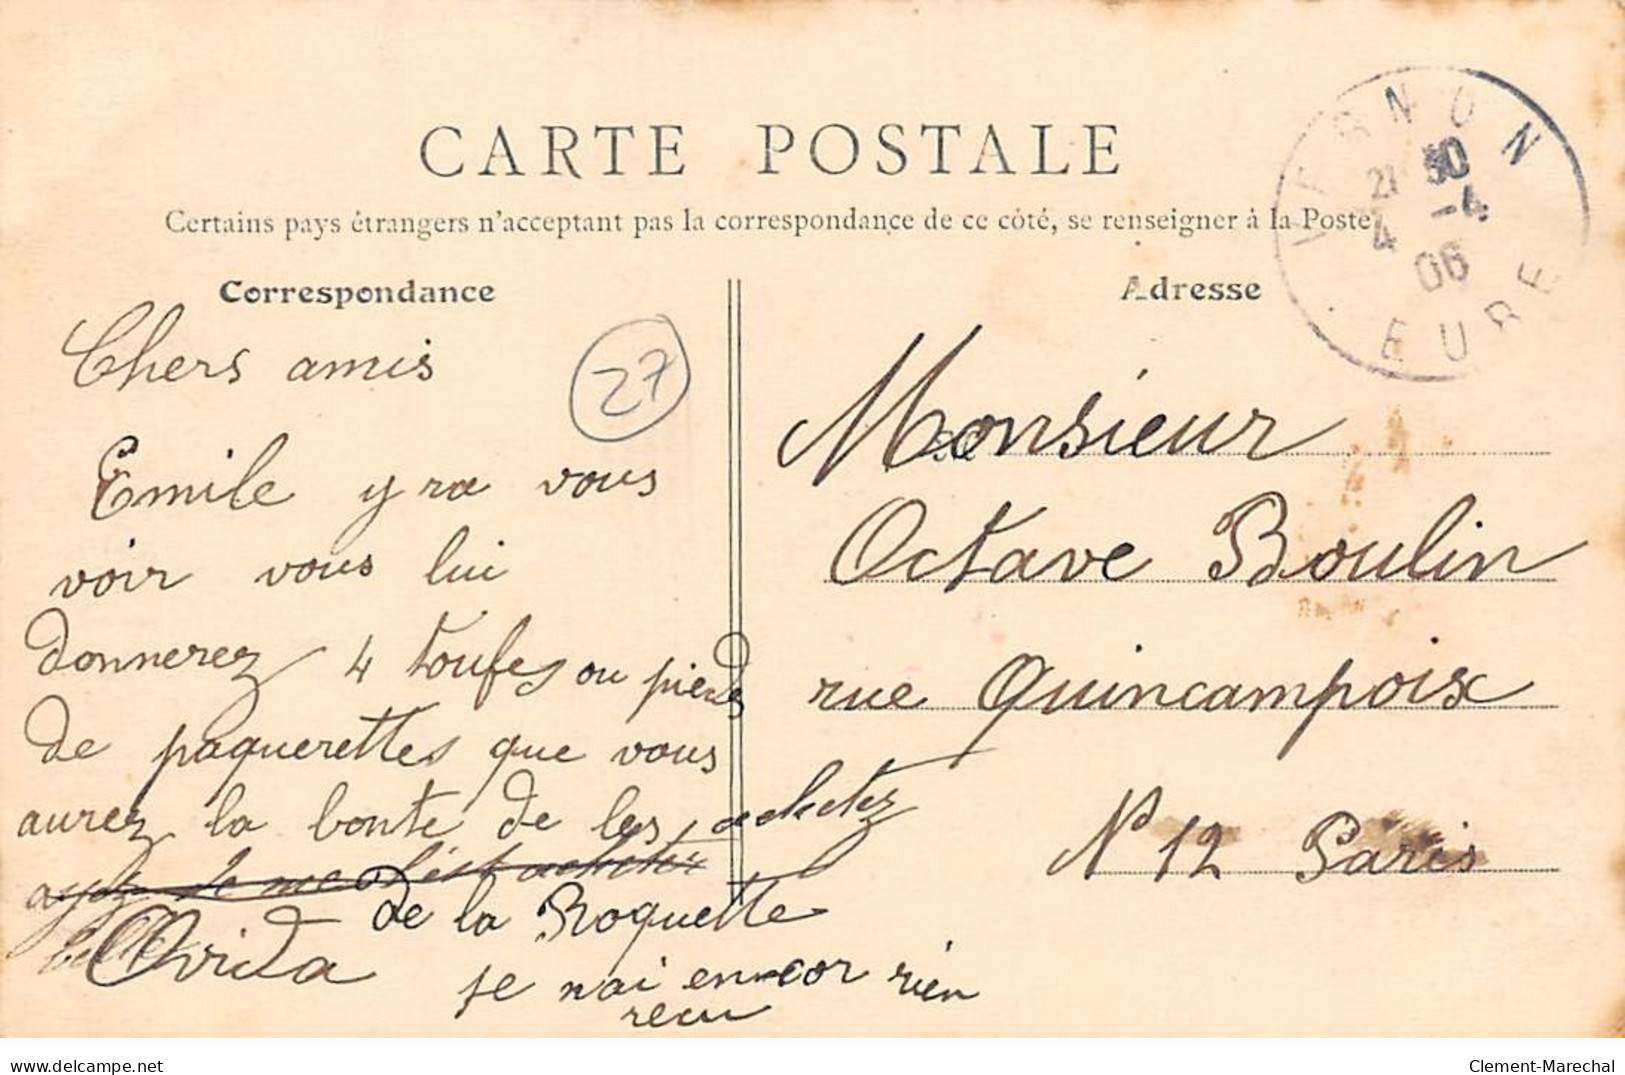 CARTE POSTALE
Certains pays étrangers n'acceptant pas la correspondance de ce côté, se renseigner à la Poste
Correspondance
Chers amis
27
Emile y ra vous
voir vous lui
donnerez 4 toufes ou pieds
de paquerettes que vous
aurez la bonte de les achetez
de la Roquette
Ovida
je n'ai encor rien
recu
Adresse
Monsieur
Octave Boulin
rue Quincampoix
N° 12 Paris
VERNON
30
4 -4
06
EURE
www.delcampe.net
Clement-Marechal